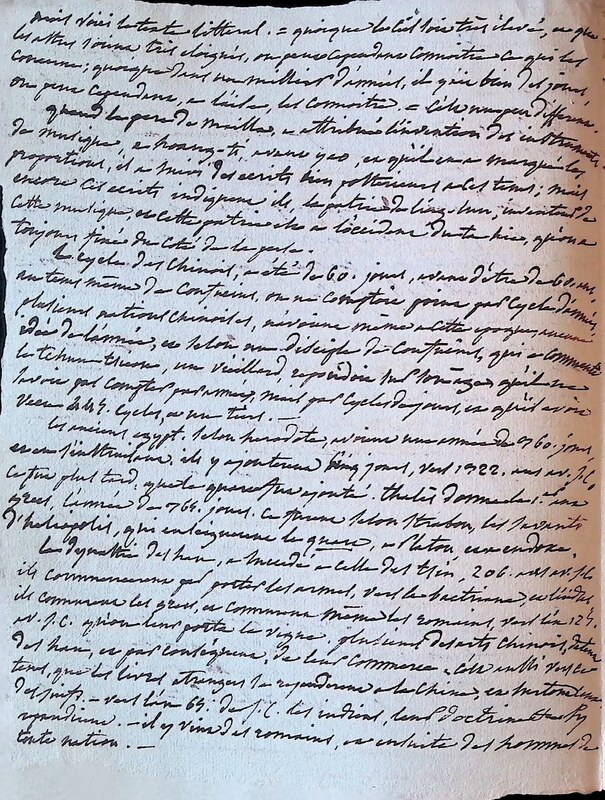 voici le texte litteral. = quoique le Ciel soit très élevé, et que
les astres soient très eloignés, on peut cependant connoitre ce qui les
concerne; quoique dans un millier d'années, il y ait bien des jours
on peut cependant, a les connoitre. = Cela un peu different.
quand le pere de mailla, a attribué l'invention des instruments
de musique, a hoang-ti, avant yao, et qu'il en a marqué les
proportions, il a suivi des ecrits bien posterieurs a ces tems; mais
encore ces ecrits indiquent ils, la patrie de inventeur de
cette musique, et cette patrie a l'occident du qu'on a
toujours fixé du Coté de la perse.
Le cycle des Chinois, a été de 60. jours, avant d'être de 60. ans,
au tems même de Confucius, on ne comptoit point par Cycle d'années,
plusieurs nations chinoises, n'avoient même a cette epoque, aucune
idée de l'année, et selon un disciple de Confucius, qui a commenté
le tchun-tsieou, un vieillard repondit sur son age, qu'il ne
savoit pas compter par années, mais par Cycles de jours, et qu'il avoit
vecu 445. Cycles, et un tiers. —
les anciens egypt. selon herodote, avoient une année de 360. jours,
ils y ajouterent cinq jours, vers 1322. ans av. J.C.
Ce fut plus tard, que le quart fut ajouté. thalès donna le 1er aux
grecs, l'année de 365. jours. Ce furent selon Strabon, les savants
d'heliopolis, qui enseignerent le quart, a Platon, et a eudoxe.
La dynastie des han, a succedé a celle des tsin, 206. ans av. J.C.
ils commencerent a porter les armes, vers la bactriane, et l'indus
ils connurent les grecs, et connurent même les romains, vers l'an 125.
av. J.C. qu'on leur porta la vigne. plusieurs des arts Chinois, datent
des han, et par consequent, de leur commerce. C'est aussi vers ce
tems, que les livres etrangers se repandirent a la Chine,
des juifs. — vers l'an 65. de J.C. les indiens, leur doctrine
repandirent. — il y vint des romains, et ensuite des hommes de
toute nation. —